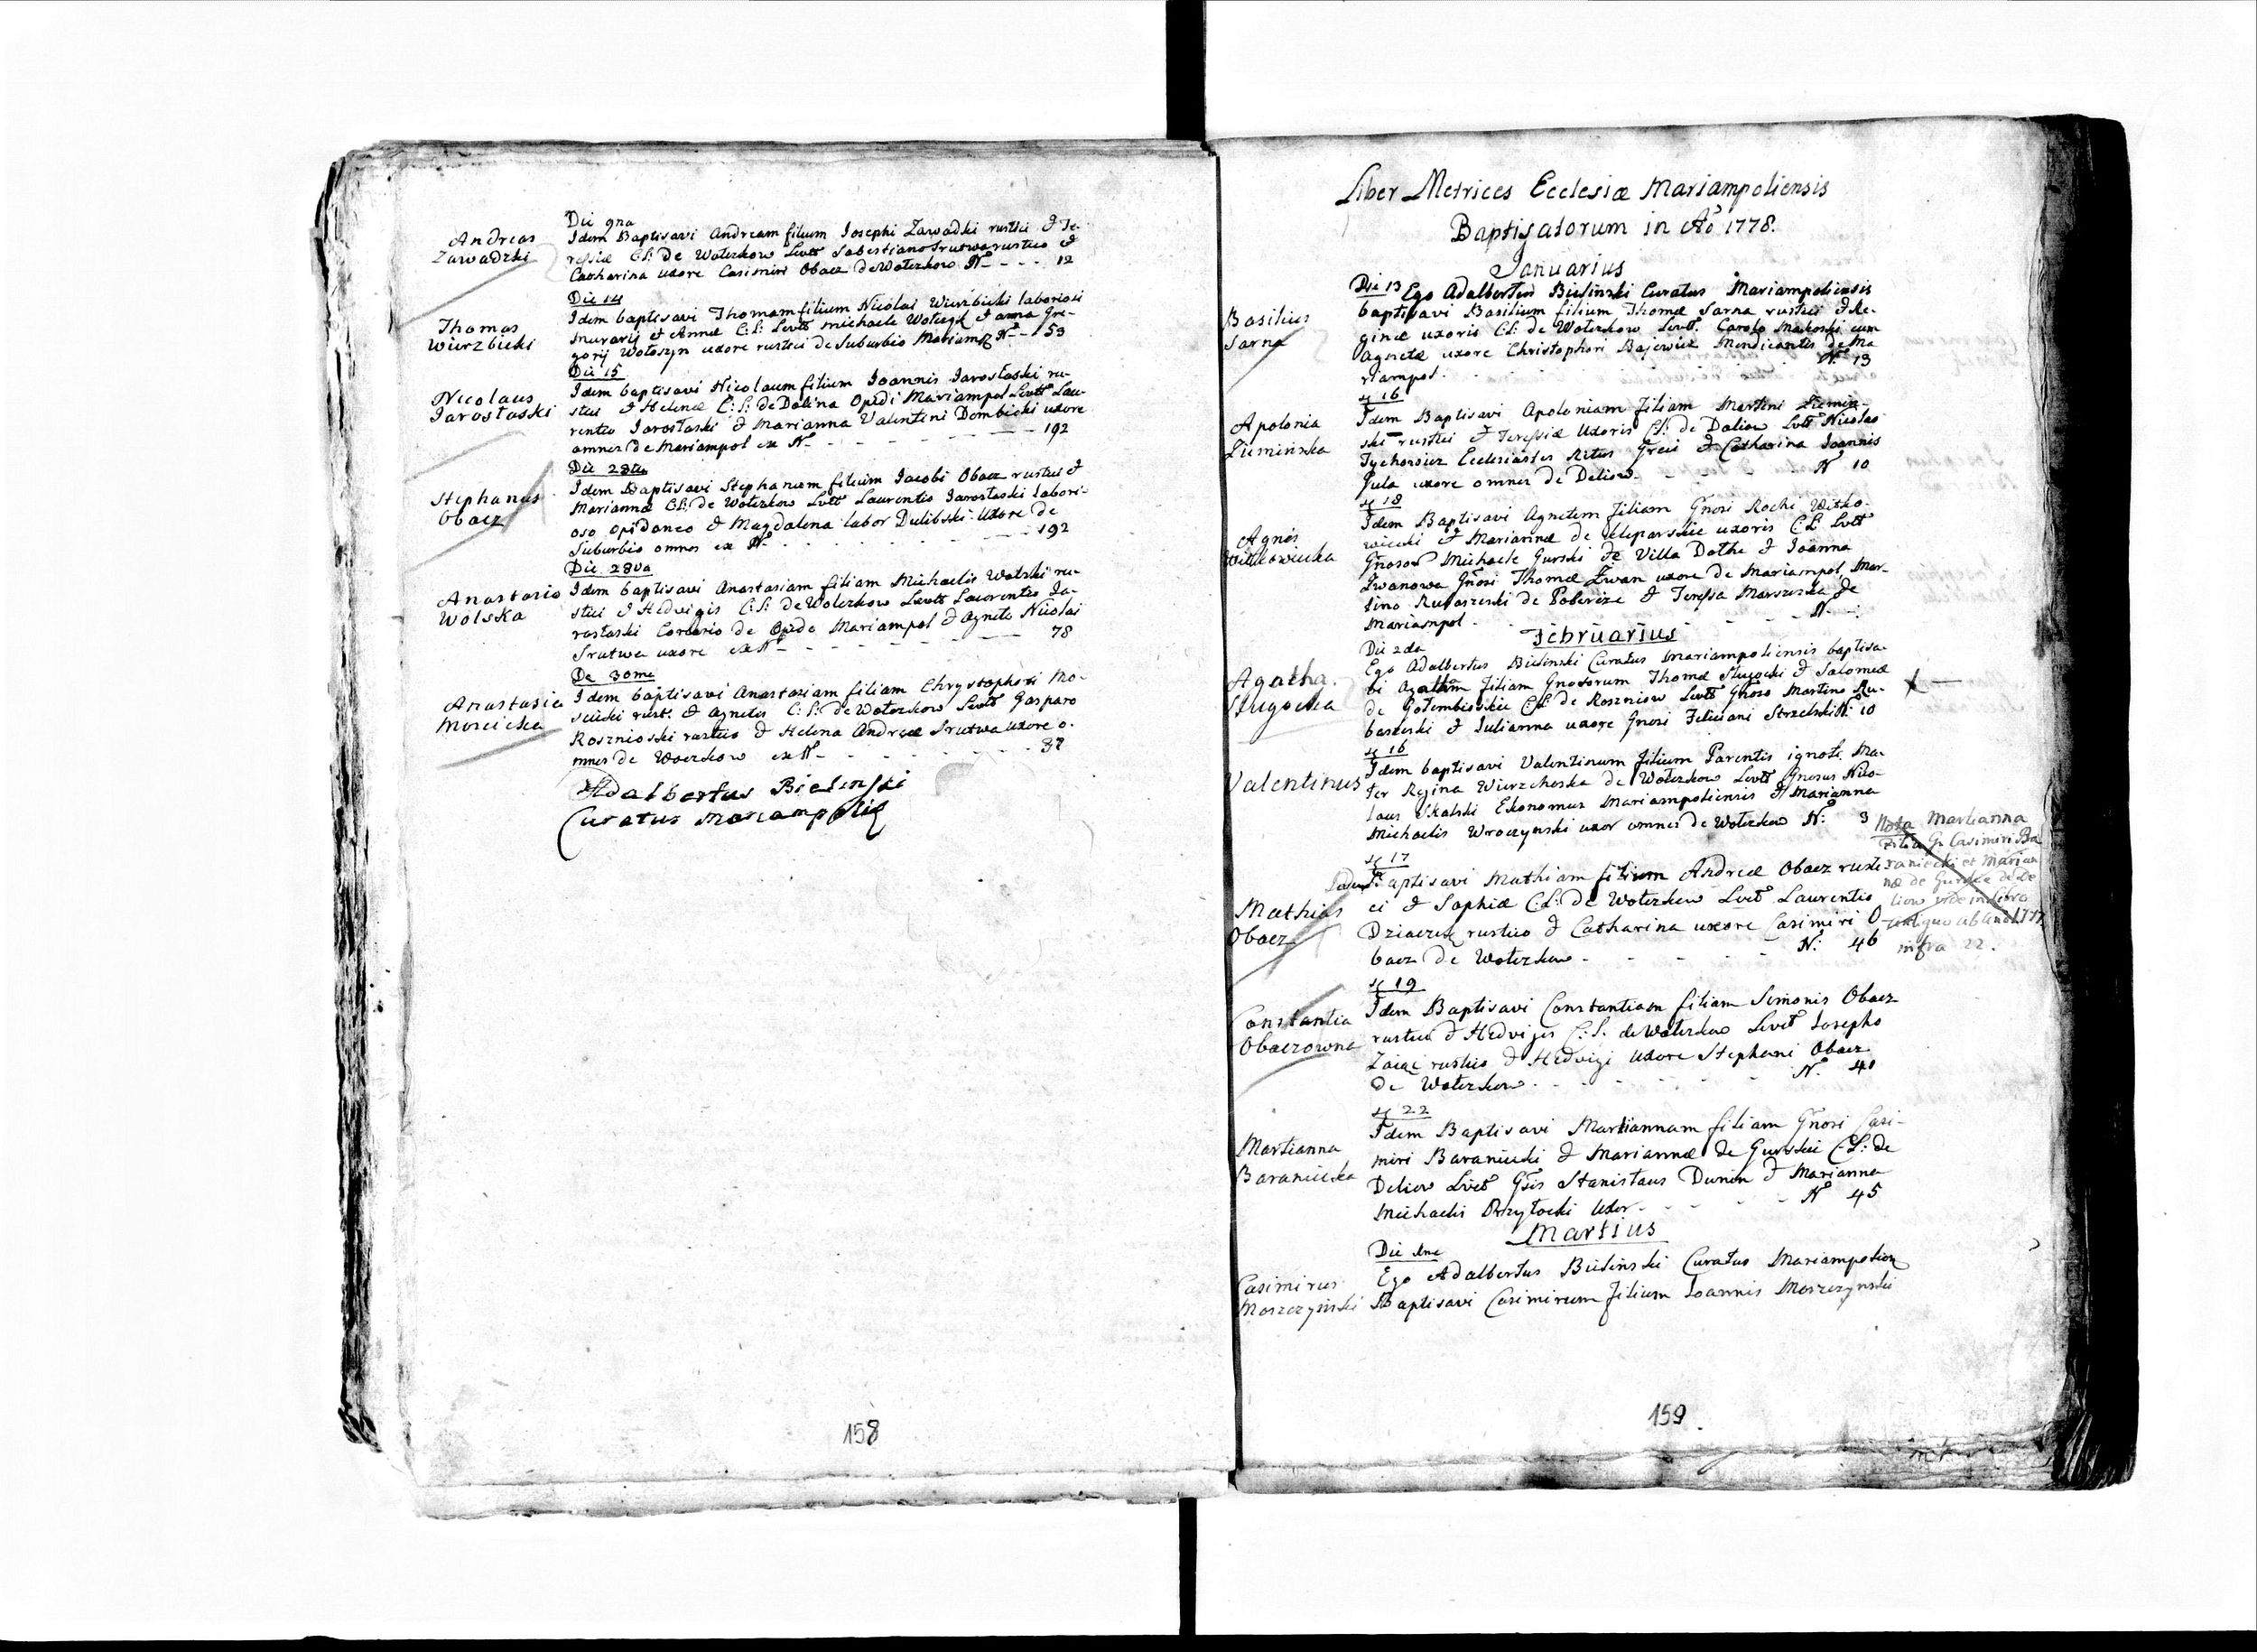 Die 9na
Andreas
Zawadzki
Idem Baptisavi Andream filium Josephi Zawadzki rustici & Te-
ressiæ C: L: de Wołczkow Levtt Sabestiano Srutwa rustico &
Catharina uxore Casimiri Obacz de Wołczkow No - - - 12
Die 14
Thomas
Wierzbicki
Idem baptisavi Thomam filium Nicolai Wierzbicki laboriosi
murarij & Annæ C: L: Levtt Michaele & Anna Gre-
gorij Wołoszyn uxore rustici de Suburbio Mariamp No - 153
Die 15
Nicolaus
Jarosłaski
Idem baptisavi Nicolaum filium Joannis Jarosłaski ru-
stici & Helenæ C: L: de Dolina Opidi Mariampol Levtt Lau-
rentio Jarosłaski & Marianna Valentini Dombicki uxore
omnes de Mariampol ex No - - - 192
Die
Stephanus
Obacz
Idem Baptisavi Stephanum filium Jacobi Obacz rustici &
Mariannæ C: L: de Wołczkow Lvtt Laurentio Jarosłaski labori-
oso opidaneo & Magdalena labor Dulibski Uxore de
Suburbio omnes ex No - - - 192
Die 28va
Anastasia
Wolska
Idem baptisavi Anastasiam filiam Michaelis Wolski ru-
stici & Hedvigis C: L: de Wołczkow Levtt Laurentio Ja-
rosłaski de Opido Mariampol & Agnete Nicolai
Srutwa uxore ex No - - - 78
De 30me
Anastasia
Moscicka
Idem baptisavi Anastasiam filiam Chrystophori Mo-
scicki rust: & Agnetis C: L: de Wołczkow Levtt Gasparo
Rosznioski rustico & Helena Andreæ Srutwa uxore o-
mnes de Woczkow ex No - - - 87
Adalbertus Bielinski
Curatus Mariampolię
158
Liber Metrices Ecclesiæ Mariampoliensis
Baptisatorum in Ao 1778.
Januarius
Die 13
Basilius
Sarna
Ego Adalbertus Bielinski Curatus Mariampoliensis
baptisavi Basilium filium Thomæ Sarna rustici & Re-
ginæ uxoris C: L: de Wołczkow Levtt. Carolo Makoski cum
Agneta uxore Christophori Bajewicz Mendicantis de Ma
riampol. - - - No 13
16
Apolonia
Zieminska
Idem Baptisavi Apoloniam filiam MartiniZiemin-
ski rustici & Teressiæ Uxoris C: L: de Deliow Lvtt Nicolao
Tychowicz Ecclesiastes Ritus Greci & Catharina Joannis
Gula uxore omnes de Deliow - - - No 10
18
Agnes
Witkowicka
Idem Baptisavi Agnetem filiam Gnosi Rochi Witko-
wicki & Mariannæ de uxoris C: L: Lvtt
Gnosos Michaele Gurski de Villa Dothe & Joanna
Iwanowa Gnosi Thomæ Iwan uxore de Mariampol, Mar-
tino de & Teressa de
Mariampol. - - - N - :
Februarius
Die 2da
Agatha
Sługocka
Ego Adalbertus Bielinski Curatus Mariampoliensis baptisa-
vi Agatham filiam Gnosorum Thomæ Sługocki & Salomeæ
de Gołembioskie C: L: de Roszniow Levtt Gnoso Martino Ru-
& Julianna uxore Gnosi Feliciani Strzelski N: 10
X —
16
Valentinus
Idem baptisavi Valentinum filium Parentis ignoti Ma-
ter Regina Wierzchoska de Wołczkow Levtt Gnosus Nico-
laus Skalski Ekonomus Mariampoliensis & Marianna
Michaelis Wroczynski uxor omnes de Wołczkow N: 3
Nota Martianna
Filia G. Casimiri Ba
raniecki et Marian
næ de Gurskie de De
liow vide in libro
antiquo ab Ano 1777
infra 22.
17
Mathias
Obacz
Idem Baptisavi Mathiam filium Andreæ Obacz rusti
ci & Sophiæ C: L: De Wołczkow Lvtt Laurentio
rustico & Catharina uxore Casimiri O-
bacz de Wołczkow - - - N: 46
19
Constantia
Obaczowna
Idem Baptisavi Constantiam filiam Simonis Obacz
rustici & Hedvigis C: L: de Wołczkow Levtt Josepho
Zaiąc rustico & Hedvigi Uxore Stephani Obacz
de Wołczkow. - - - No. 40
22
Martianna
Baraniecka
Idem Baptisavi Martiannam filiam Gnosi Casi-
miri Baraniecki & Mariannæ de Gurskie C: L: de
Deliow Lvtt Gsis Stanisłaus Dunin & Marianna
Michaelis Przyłocki Uxor - - - No 45
Martius
Die
Casimirus
Moszczyński
Ego Adalbertus Bielinski Curatus Mariampolien
Baptisavi Casimirum filium Joannis Moszczynski
159